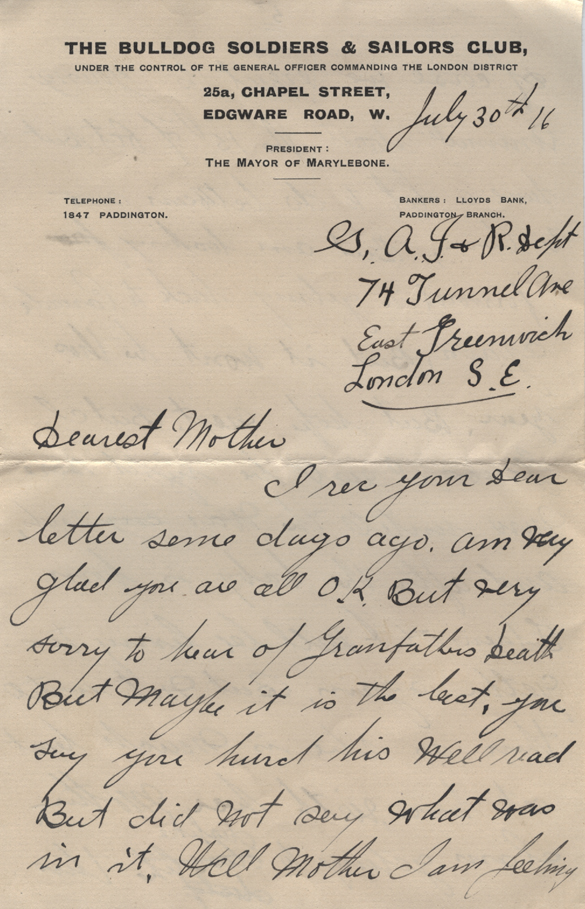 THE BULLDOG SOLDIERS & SAILORS CLUB,
UNDER THE CONTROL OF THE GENERAL OFFICER COMMANDING THE LONDON DISTRICT
25a, CHAPEL STREET,
EDGWARE ROAD, W.
July 30th 16
PRESIDENT :
THE MAYOR OF MARYLEBONE.
TELEPHONE :
1847 PADDINGTON.
BANKERS : LLOYDS BANK,
PADDINGTON BRANCH.
G, A. G & R. Dept
74 Tunnel Ave
East Greenwich
London S.E.
Dearest Mother
I rec your dear
letter some days ago. am very
glad you are all O.K. But very
sorry to hear of Granfathers death
But Maybe it is the best, you
say you hurd his Well read
But did Not say what was
in it, Well Mother I am feeling